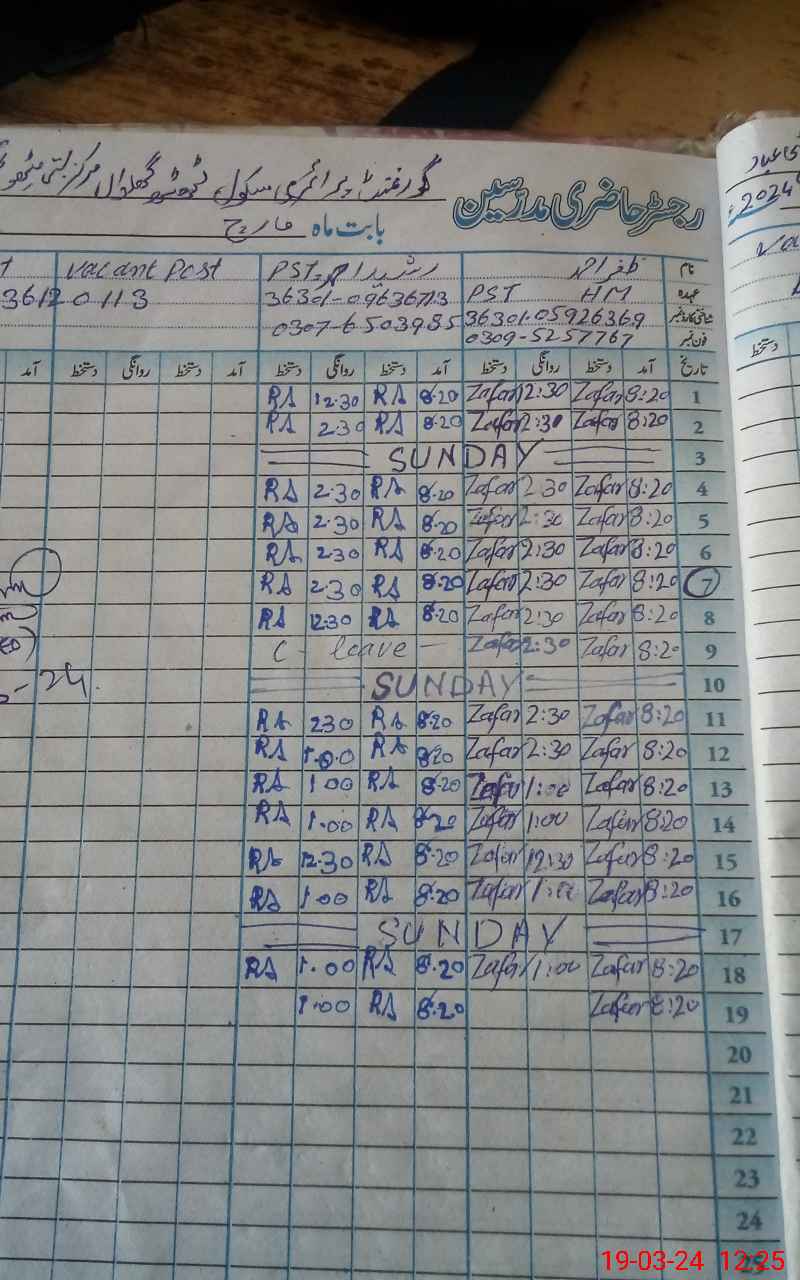 رجسٹر حاضری مدرسین گورنمنٹ پرائمری سکول ٹھٹھہ گھلواں مرکز بستی مٹھو
بابت ماہ مارچ
نام ظفر احمد رشید احمد PST vacant Post
عہدہ HM PST 36301-09636713 0113
شناختی کارڈ نمبر 36301-05926369 0307-6503985
فون نمبر 0309-5257767
تاریخ آمد دستخط روانگی دستخط آمد دستخط روانگی دستخط آمد دستخط روانگی دستخط آمد
1 8:20 Zafar 12:30 Zafar 8.20 RA 12.30 RA
2 8:20 Zafar 2:30 Zafar 8.20 RA 2.30 RA
3 SUNDAY
4 8:20 Zafar 2:30 Zafar 8.20 RA 2.30 RA
5 8:20 Zafar 2:30 Zafar 8.20 RA 2.30 RA
6 8:20 Zafar 2:30 Zafar 8.20 RA 2.30 RA
7 8:20 Zafar 2:30 Zafar 8.20 RA 2.30 RA
8 8:20 Zafar 2:30 Zafar 8.20 RA 12.30 RA
9 8:20 Zafar 2:30 Zafar C - leave -
10 SUNDAY
11 8:20 Zafar 2:30 Zafar 8.20 RA 230 RA
12 8:20 Zafar 2:30 Zafar 8.20 RA 1.00 RA
13 8:20 Zafar 1:00 Zafar 8.20 RA 1.00 RA
14 8:20 Zafar 1:00 Zafar 8.20 RA 1.00 RA
15 8:20 Zafar 12:30 Zafar 8.20 RA 12.30 RA
16 8:20 Zafar 1:00 Zafar 8.20 RA 1.00 RA
17 SUNDAY
18 8:20 Zafar 1:00 Zafar 8.20 RA 1.00 RA
19 8:20 Zafar 8.20 RA 1.00
20
21
22
23
24
25
2024
دستخط
19-03-24 12:25